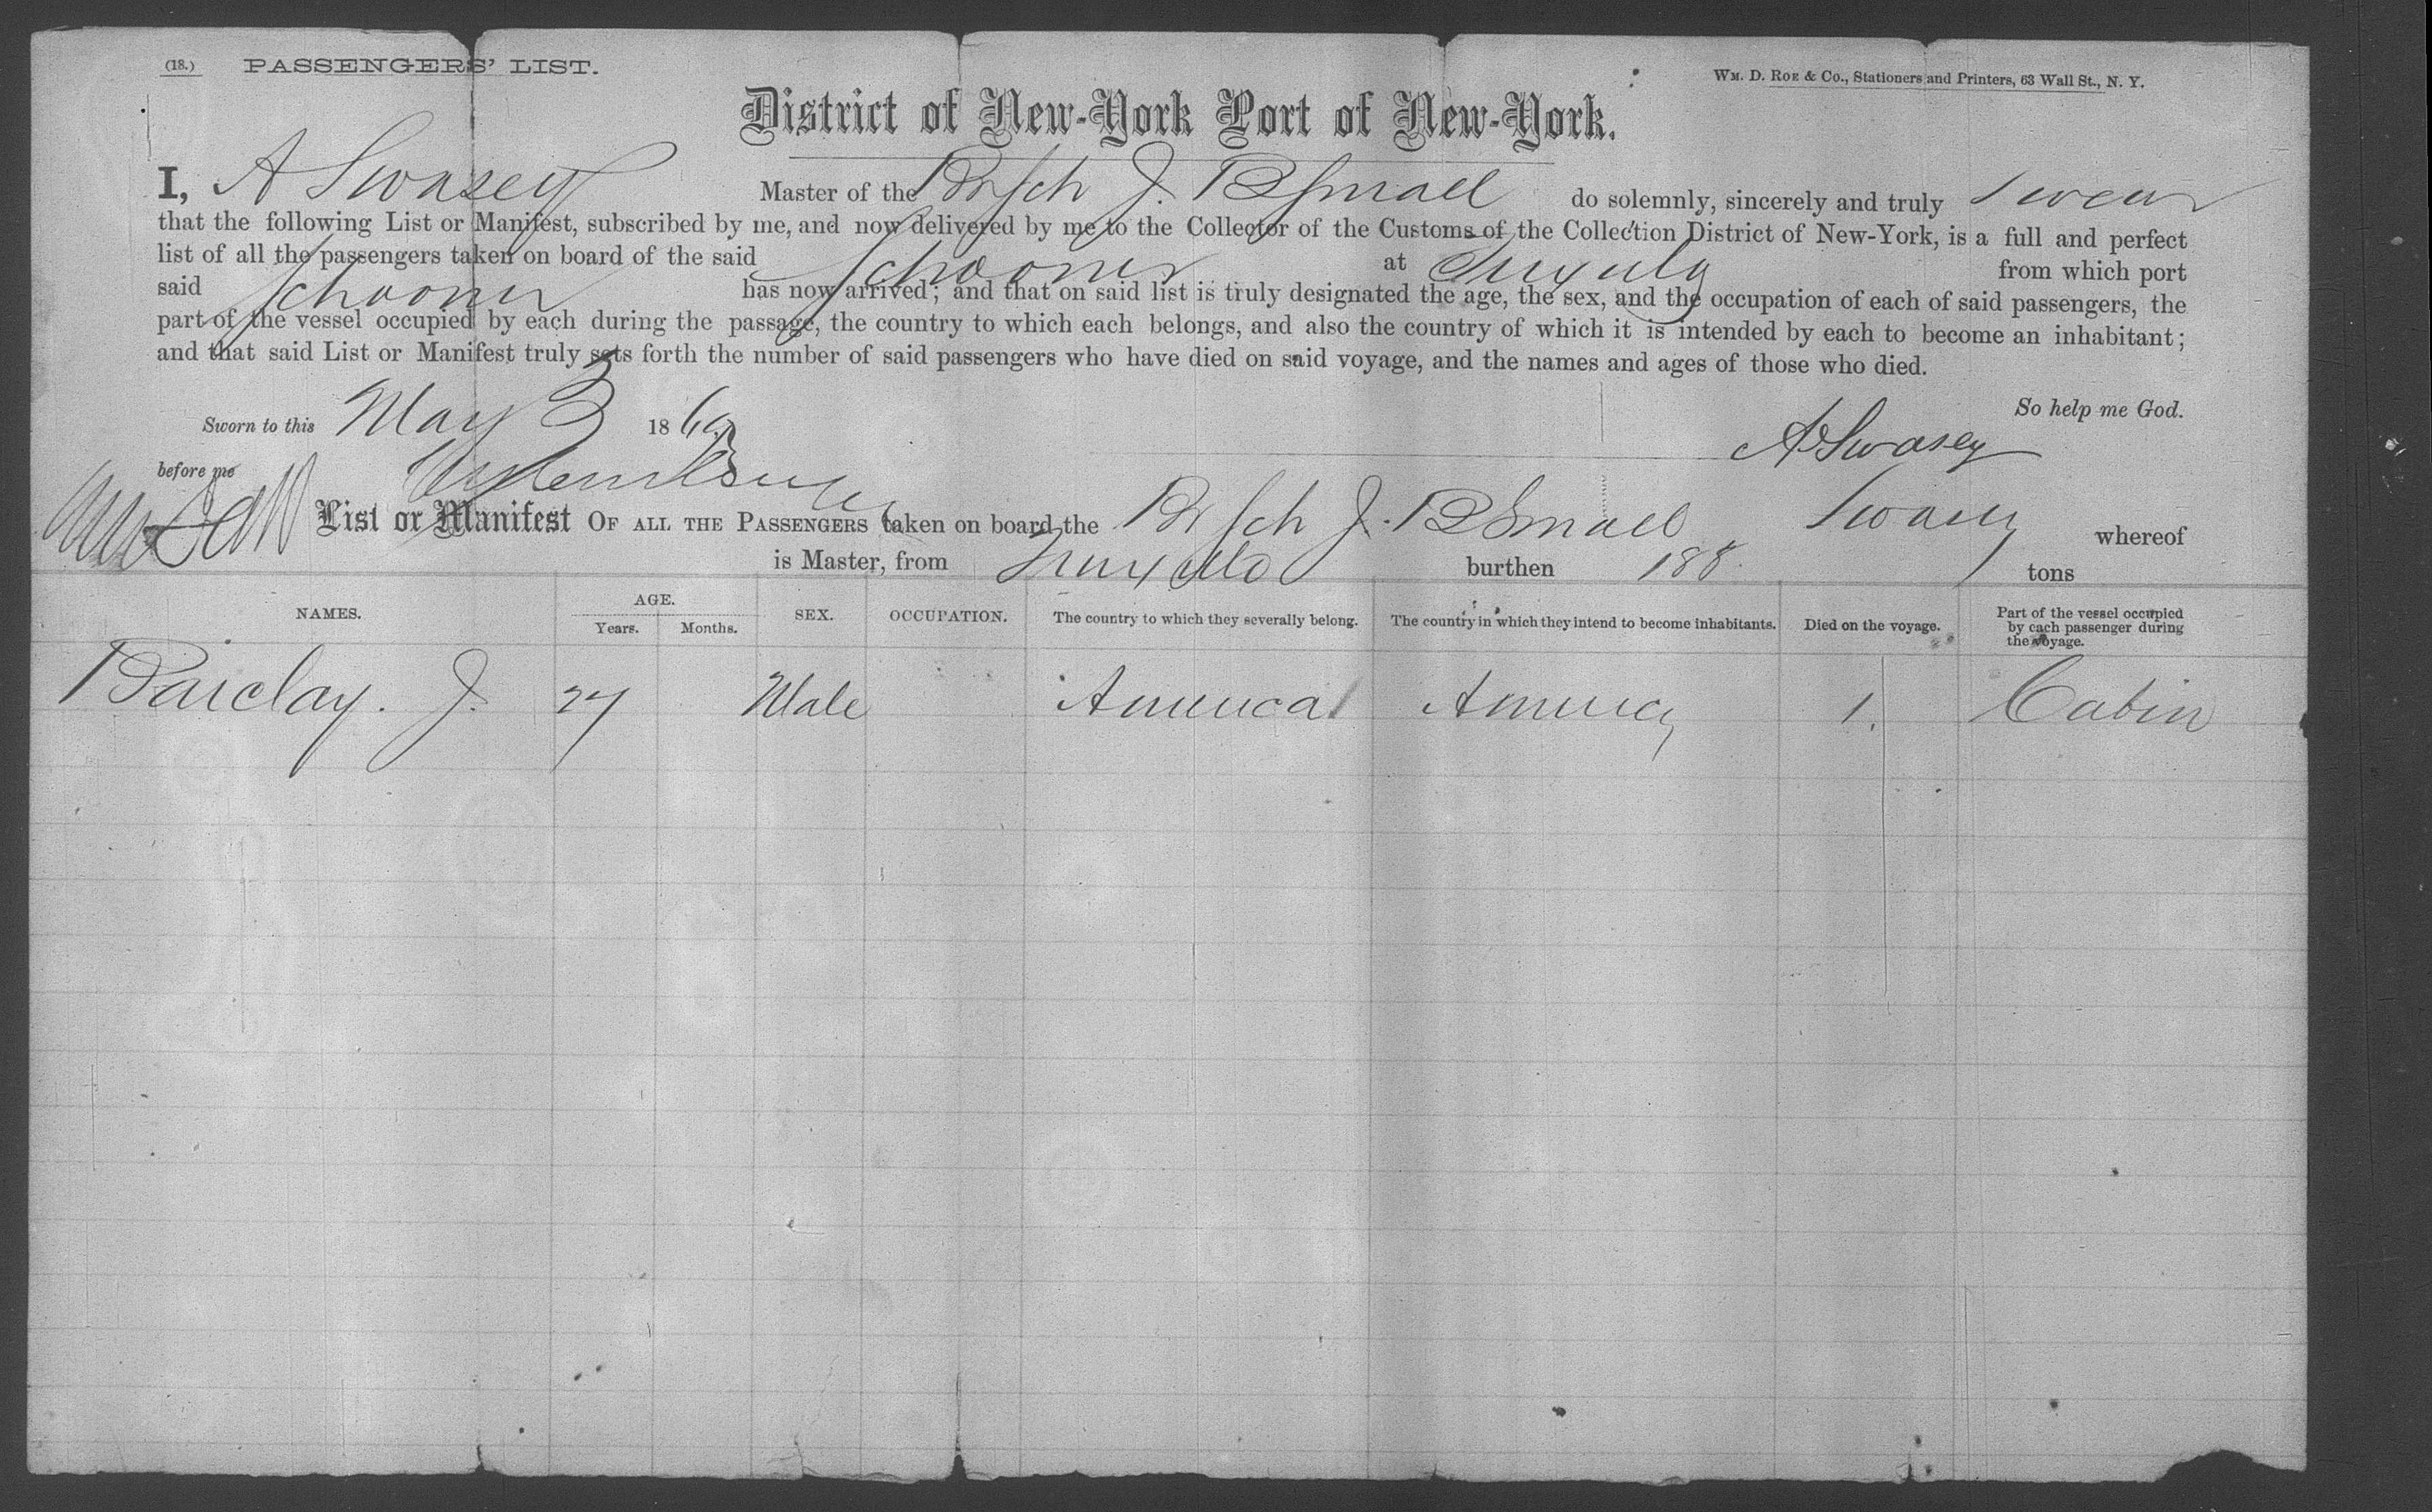 (18.) PASSENGERS' LIST.
Wm. D. Roe & Co., Stationers and Printers, 63 Wall St., N. Y.
District of New-York Port of New-York.
I, A Swasey Master of the Br Sch J. B Small do solemnly, sincerely and truly swear
that the following List or Manifest, subscribed by me, and now delivered by me to the Collector of the Customs of the Collection District of New-York, is a full and perfect
list of all the passengers taken on board of the said Schooner at from which port
said Schooner has now arrived; and that on said list is truly designated the age, the sex, and the occupation of each of said passengers, the
part of the vessel occupied by each during the passage, the country to which each belongs, and also the country of which it is intended by each to become an inhabitant;
and that said List or Manifest truly sets forth the number of said passengers who have died on said voyage, and the names and ages of those who died.
So help me God.
Sworn to this May 3 186
A Swasey
before me
List or Manifest OF ALL THE PASSENGERS taken on board the Br Sch J. B Small Swasey whereof
is Master, from Truxillo burthen 188. tons
NAMES. AGE. Years. Months. SEX. OCCUPATION. The country to which they severally belong. The country in which they intend to become inhabitants. Died on the voyage. Part of the vessel occupied by each passenger during the voyage.
Barclay. J. 27 Male America America 1. Cabin